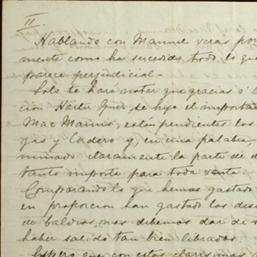 II.
Hablando con Manuel verás por
mente como ha sucedido todo lo que
parece perjudicial.-
Solo te haré notar que gracias á
ción Héctor se hizo el importa
Mac Manus, están pendientes los
gas y Cadero y, en una palabra,
minado claramente la parte de
tanto importe para toda venta.
Comparando lo que hemos gastado
en proporcion han gastado los des
de baldíos, mas debemos dar de
haber salido tan bien librados.
Espero que con estas clarísimas